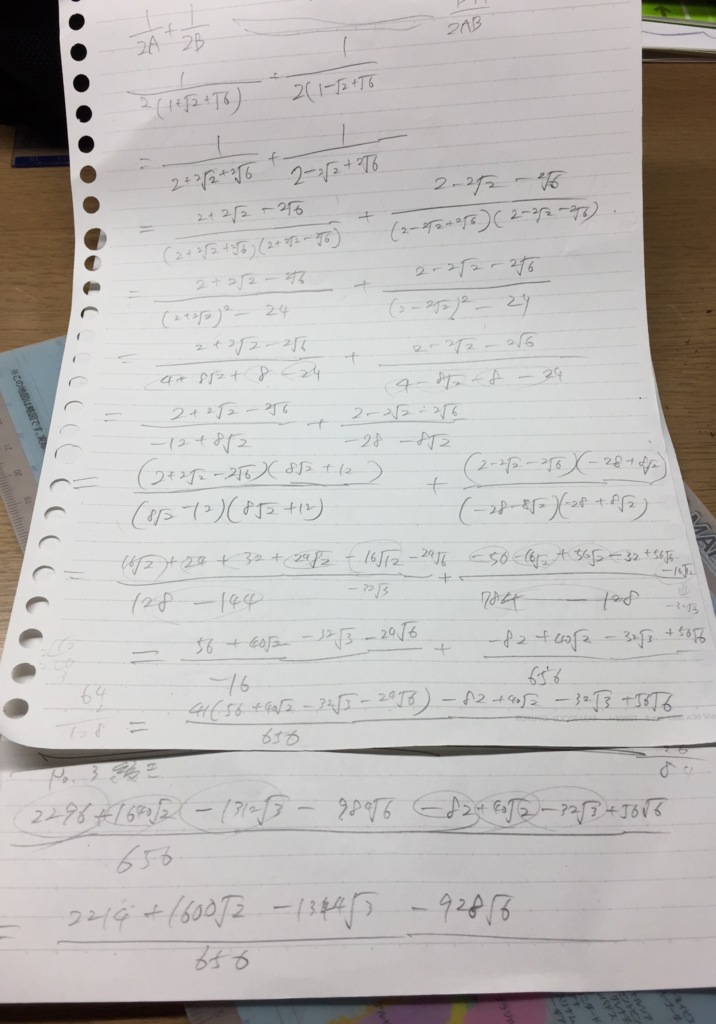 1/2A + 1/2B
2AB
1/2(1+√2+√6) + 1/2(1-√2+√6
= 1/2+2√2+2√6 + 1/2-2√2+2√6
= 2+2√2-2√6/(2+2√2+2√6)(2+2√2-2√6) + 2-2√2-2√6/(2-2√2+2√6)(2-2√2-2√6).
= 2+2√2-2√6/(2+2√2)²-24 + 2-2√2-2√6/(2-2√2)²-24
= 2+2√2-2√6/4+8√2+8-24 + 2-2√2-2√6/4-8√2-8-24
= 2+2√2-2√6/-12+8√2 + 2-2√2-2√6/-28-8√2
= (2+2√2-2√6)(8√2+12)/(8√2-12)(8√2+12) + (2-2√2-2√6)(-28+8√2)/(-28-8√2)(-28+8√2)
= 16√2+24+32+24√2-16√12-24√6/128-144 + -50+16√2+56√2-32+56√6-16√12/784-128
-32√3
-32√3
= 56+40√2-32√3-24√6/-16 + -82+40√2-32√3+56√6/656
64
128
= 41(56+40√2-32√3-24√6)-82+40√2-32√3+56√6/656
No. 3
84
2296+1640√2-1312√3-984√6-82+40√2-32√3+56√6/656
= 2214+1600√2-1344√3-928√6/656